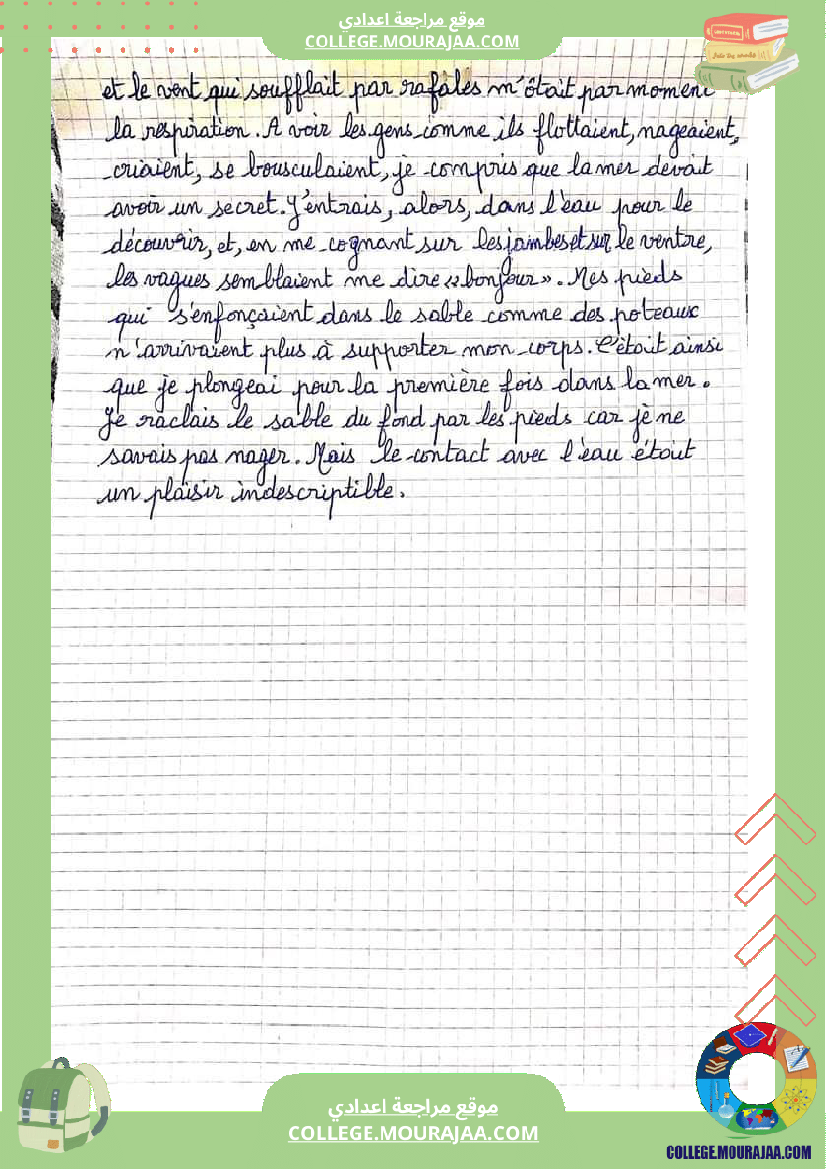 موقع مراجعة اعدادي
COLLEGE.MOURAJAA.COM
et le vent qui soufflait par rafales m'ôtait par moment
la respiration. A voir les gens comme ils flottaient, nageaient,
criaient, se bousculaient, je compris que la mer devait
avoir un secret. J'entrais, alors, dans l'eau pour le
découvrir, et, en me cognant sur les jambes et sur le ventre,
les vagues semblaient me dire « bonjour ». Mes pieds
qui s'enfonçaient dans le sable comme des poteaux
n'arrivaient plus à supporter mon corps. C'était ainsi
que je plongeai pour la première fois dans la mer.
Je raclais le sable du fond par les pieds car je ne
savais pas nager. Mais le contact avec l'eau était
un plaisir indescriptible.
موقع مراجعة اعدادي
COLLEGE.MOURAJAA.COM
COLLEGE.MOURAJAA.COM